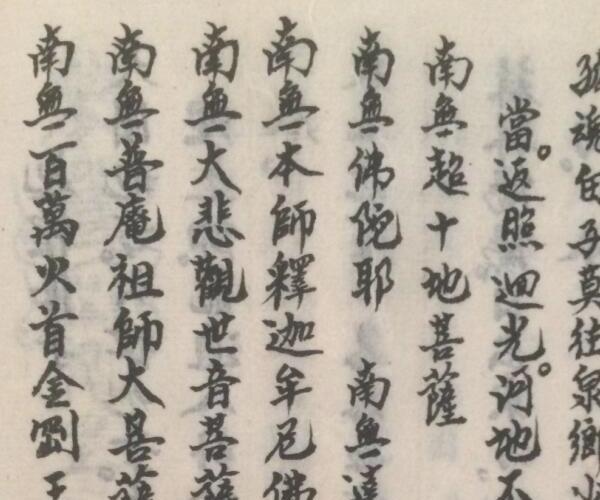 魂自子莫往泉鄉
當返照迴光河地不
南無超十地菩薩
南無佛陀耶 南無達
南無本師釋迦牟尼佛
南無大悲觀世音菩薩
南無普庵祖師大菩薩
南無百萬火首金剛王